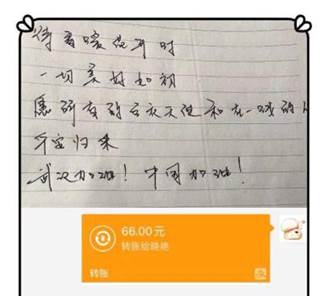 待春暖花开时
一切美好如初
愿所有的白衣天使和在一线的
平安归来
武汉加油！中国加油！
66.00元
转账给
转账